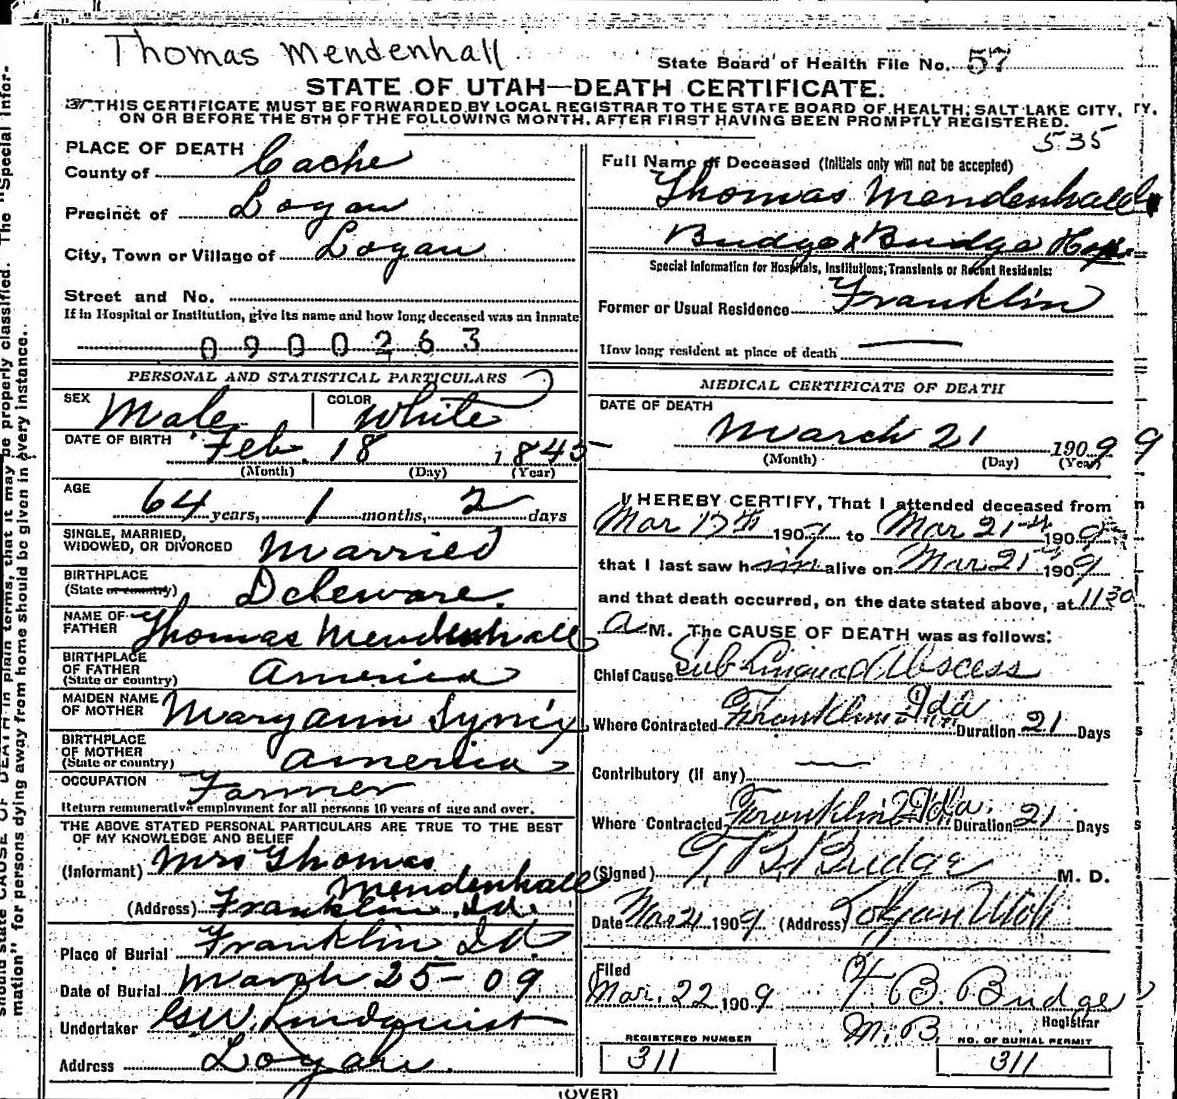 Thomas Mendenhall
State Board of Health File No. 57
STATE OF UTAH—DEATH CERTIFICATE.
THIS CERTIFICATE MUST BE FORWARDED BY LOCAL REGISTRAR TO THE STATE BOARD OF HEALTH, SALT LAKE CITY,
ON OR BEFORE THE 5TH OF THE FOLLOWING MONTH, AFTER FIRST HAVING BEEN PROMPTLY REGISTERED.
535
PLACE OF DEATH
County of Cache
Precinct of Logan
City, Town or Village of Logan
Street and No.
If in Hospital or Institution, give its name and how long deceased was an inmate
0900263
Full Name of Deceased (Initials only will not be accepted)
Thomas Mendenhall
Budge & Budge Hosp.
Special Information for Hospitals, Institutions, Transients or Recent Residents:
Former or Usual Residence Franklin
How long resident at place of death
PERSONAL AND STATISTICAL PARTICULARS
SEX Male
COLOR White
DATE OF BIRTH Feb. 18 1845
(Month) (Day) (Year)
AGE
64 years, 1 months, 2 days
SINGLE, MARRIED,
WIDOWED, OR DIVORCED Married
BIRTHPLACE
(State or country) Deleware.
NAME OF
FATHER Thomas Mendenhall
BIRTHPLACE
OF FATHER
(State or country) America
MAIDEN NAME
OF MOTHER Mary ann
BIRTHPLACE
OF MOTHER
(State or country) America
OCCUPATION Farmer
Return remunerative employment for all persons 10 years of age and over.
THE ABOVE STATED PERSONAL PARTICULARS ARE TRUE TO THE BEST
OF MY KNOWLEDGE AND BELIEF
(Informant) Mrs Thomas
Mendenhall
(Address) Franklin Id.
Place of Burial Franklin Id.
Date of Burial March 25-09
Undertaker Lindquist
Address Logan.
MEDICAL CERTIFICATE OF DEATH
DATE OF DEATH
March 21 1909 9
(Month) (Day) (Year)
I HEREBY CERTIFY, That I attended deceased from
Mar 17th 1909 to Mar 21st 1909
that I last saw him alive on Mar 21st 1909
and that death occurred, on the date stated above, at 11 30
A M. The CAUSE OF DEATH was as follows:
Chief Cause Sub Lingual Abscess
Where Contracted Franklin Ida Duration 21 Days
Contributory (if any)
Where Contracted Franklin Ida. Duration 21 Days
(Signed) T. B. Budge M. D.
Date Mar 21 1909 (Address) Logan Utah
Filed
Mar. 22 1909 B. Budge
Registrar
REGISTERED NUMBER
311
NO. OF BURIAL PERMIT
311
(OVER)
should state CAUSE OF DEATH in plain terms, that it may be properly classified. The "Special Infor-
mation" for persons dying away from home should be given in every instance.